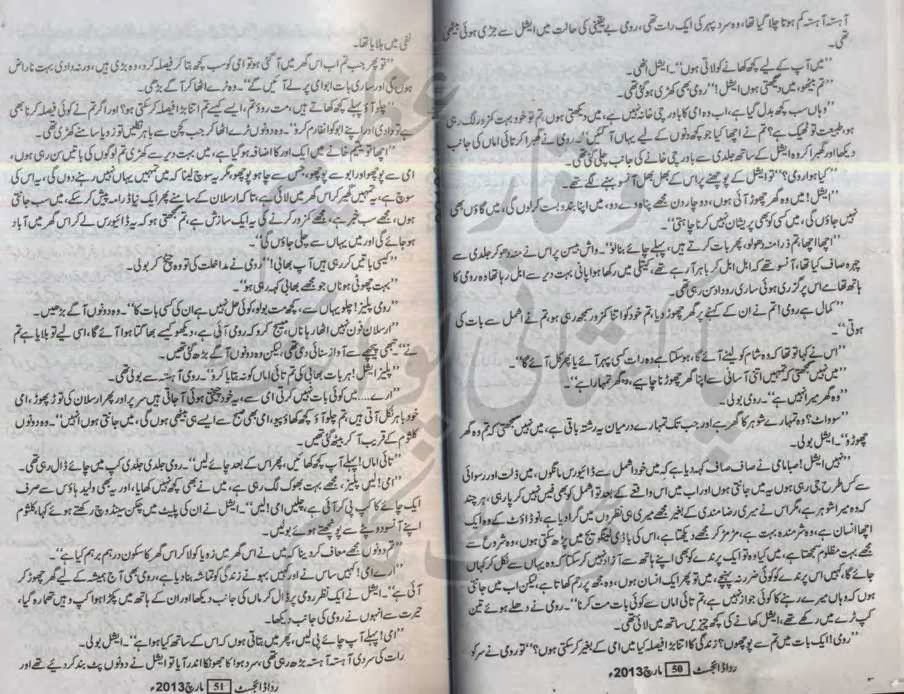 آہستہ آہستہ کم ہوتا چلا گیا تھا، وہ سرد پہر کی ایک رات تھی، رومی بے یقینی کی حالت میں ایشل سے جڑی ہوئی بیٹھی
تھی۔
"میں آپ کے لیے کچھ کھانے کو لاتی ہوں"۔ ایشل اٹھی۔
"تم بیٹھو، میں دیکھتی ہوں ایشل!" رومی بھی کھڑی ہو گئی تھی۔
"وہاں سب کچھ بدل گیا ہے، اب وہ امی کا باورچی خانہ نہیں ہے، میں دیکھتی ہوں، تم تو خود بہت کمزور لگ رہی
ہو، طبیعت تو ٹھیک ہے؟ تم نے اچھا کیا جو کچھ دنوں کے لیے یہاں آ گئیں"۔ رومی نے گھبرا کر تائی اماں کی جانب
دیکھا اور گھبرا کر وہ ایشل کے ساتھ جلدی سے باورچی خانے کی جانب چلی گئی تھی۔
"کیا ہوا رومی؟" تو ایشل کے پوچھنے پر اس کے آنسو بہنے لگے تھے۔
"ایشل! میں وہ گھر چھوڑ آئی ہوں، دو چار دن مجھے پناہ دے دو، میں اپنا بندوبست کر لوں گی، میں گاؤں بھی
نہیں جاؤں گی، میں کسی کو بھی پریشان نہیں کرنا چاہتی"۔
"اچھا اچھا، تم ذرا منہ دھو لو، پھر بات کرتے ہیں، پہلے چائے بنا لو"۔ واش بیسن پر اس نے منہ دھو کر جلدی سے
چہرہ صاف کیا تھا، آنسو تھے کہ ابل ابل کر باہر آ رہے تھے، کیتلی میں رکھا ہوا پانی بہت دیر سے ابل رہا تھا وہ رومی کا
ہاتھ تھامے اس پر گزری ہوئی ساری روداد سن رہی تھی۔
"کمال ہے رومی! تم نے ان کے کہنے پر گھر چھوڑ دیا، تم خود کو اتنا کمزور سمجھ رہی ہو، تم نے اشمل سے بات کی
ہوتی"۔
"اس نے کہا تو تھا کہ وہ شام کو لینے آئے گا، ہو سکتا ہے وہ رات کسی پہر آئے یا پھر کل آئے گا"۔
"میں نہیں سمجھتی کہ تمہیں اتنی آسانی سے اپنا گھر چھوڑنا چاہیے، وہ گھر تمہارا ہے"۔
"وہ گھر میرا نہیں ہے"۔ رومی بولی۔
"سو واٹ؟ وہ تمہارے شوہر کا گھر ہے اور جب تک تمہارے درمیان یہ رشتہ باقی ہے، میں نہیں سمجھتی کہ تم وہ گھر
چھوڑو"۔ ایشل بولی۔
"نہیں ایشل! صبا مامی نے صاف صاف کہہ دیا ہے کہ میں خود اشمل سے ڈائیورس مانگوں، میں ذلت اور رسوائی
سے کس طرح جی رہی ہوں یہ میں جانتی ہوں اور اب میں اس واقعے کے بعد تو اشمل کو بھی فیس نہیں کر پا رہی، ہر چند
کہ وہ میرا شوہر ہے، مگر اس نے میری رضامندی کے بغیر مجھے میری ہی نظروں میں گرا دیا ہے، نو ڈاؤٹ کے وہ ایک
اچھا انسان ہے، وہ شرمندہ بہت ہے، مڑ مڑ کر مجھے دیکھتا ہے، اس کی باڈی لینگویج میں پڑھ سکتی ہوں، وہ شروع سے
مجھے بہت مظلوم سمجھتا ہے، میں کیا وہ تو ایک پرندے کو بھی اپنے ہاتھ سے آزاد نہیں کر سکتا کہ وہ یہاں سے نکل کر کہاں
جائے گا، کہیں اس پرندے کو کوئی ضرر نہ پہنچے، میں تو پھر ایک انسان ہوں، وہ مجھ پر رحم کھاتا ہے، لیکن اب میں جانتی
ہوں کہ وہاں میرے رہنے کا کوئی جواز نہیں ہے، تم تائی اماں سے کوئی بات مت کرنا"۔ رومی نے دھلے ہوئے تین
کپ ٹرے میں رکھے تھے، ایشل کھانے کی کچھ چیزیں ساتھ میں لائی تھی۔
"رومی! ایک بات میں تم سے پوچھوں؟ زندگی کا اتنا بڑا فیصلہ کیا میں امی کے بغیر کر سکتی ہوں؟" تو رومی نے سر کو
رداڈائجسٹ 50 مارچ 2013ء
نفی میں ہلایا تھا۔
"تو پھر جب تم اب اس گھر میں آ گئی ہو تو امی کو سب کچھ بتا کر فیصلہ کرو، وہ بڑی ہیں، ورنہ دادی بہت ناراض
ہوں گی اور ساری بات ابو امی پر لے آئیں گے"۔ وہ ٹرے اٹھا کر آگے بڑھی۔
"چلو آؤ پہلے کچھ کھاتے ہیں، مت روؤ تم، ایسے کیسے تم اتنا بڑا فیصلہ کر سکتی ہو؟ اور اگر تم نے کوئی فیصلہ کرنا بھی
ہے تو دادی اور اپنے ابو کو انفارم کرو"۔ وہ دونوں ٹرے اٹھا کر جب کچن سے باہر نکلیں تو زویا سامنے کھڑی تھی۔
"اچھا تو یتیم خانے میں ایک اور کا اضافہ ہو گیا ہے، میں بہت دیر سے کھڑی تم لوگوں کی باتیں سن رہی ہوں،
امی سے پوچھو اور ابو سے پوچھو، جس سے چاہو پوچھو، مگر یہ سوچ لینا کہ میں تمہیں یہاں نہیں رہنے دوں گی، یہ اس کی
سوچ ہے، یہ تمہیں گھیر کر اس گھر میں لائی ہے، تاکہ ارسلان کے سامنے پھر ایک نیا ڈرامہ پیش کر سکے، میں سب جانتی
ہوں، مجھے سب خبر ہے، مجھے کمزور کرنے کی یہ ایک سازش ہے، تم سمجھتی ہو کہ یہ ڈائیورس لے کر اس گھر میں آباد
ہو جائے گی اور میں یہاں سے چلی جاؤں گی"۔
"کیسی باتیں کر رہی ہیں آپ بھابی!" رومی نے مداخلت کی تو وہ چیخ کر بولی۔
"بہت چھوٹی ہو ناں جو مجھے بھابی کہہ رہی ہو"۔
"رومی پلیز! چلو یہاں سے، کچھ مت بولو، کوئی حل نہیں ہے ان کی کسی بات کا"۔ وہ دونوں آگے بڑھیں۔
"ارسلان فون نہیں اٹھا رہا ناں، میسج کرو کہ رومی آئی ہے، دیکھو کیسے بھاگتا ہوا آئے گا، اسی لیے تو بلایا ہے تم
نے"۔ تبھی پیچھے سے آواز سنائی دی تھی، لیکن وہ دونوں آگے بڑھ گئی تھیں۔
"پلیز ایشل! ہر بات بھابی کی تم تائی اماں کو نہ بتایا کرو"۔ رومی آہستہ سے بولی تھی۔
"ارے..... میں کوئی بات نہیں کرتی امی سے، یہ خود چیختی ہوئی آ جاتی ہیں سر پر اور پھر ارسلان کی توڑ پھوڑ، امی
خود باہر نکل آتی ہیں، تم چلو آؤ کچھ کھاؤ پیو، امی بھی صبح سے ایسے ہی بیٹھی ہوں گی، میں جانتی ہوں انہیں"۔ وہ دونوں
کلثوم کے قریب آ کر بیٹھ گئی تھیں۔
"تائی اماں! پہلے آپ کچھ کھائیں، پھر اس کے بعد چائے لیں"۔ رومی جلدی جلدی کپ میں چائے ڈال رہی تھی۔
"امی! لیں پلیز، مجھے بہت بھوک لگ رہی ہے، میں نے بھی کچھ نہیں کھایا، اور یہ بھی ولید ہاؤس سے صرف
ایک چائے کا کپ پی کر آئی ہے، چلیں امی! لیں"۔ ایشل نے ان کی پلیٹ میں چکن سینڈوچ رکھتے ہوئے کہا، کلثوم
اپنے آنسو دوپٹے سے پونچھتے ہوئے بولیں۔
"تم دونوں مجھے معاف کر دینا کہ میں نے اس گھر میں زویا کو لا کر اس گھر کا سکون درہم برہم کیا ہے"۔
"ارے امی! کہیں ساس نے اور کہیں بہو نے زندگی کو تماشہ بنا دیا ہے، رومی بھی آج ہمیشہ کے لیے گھر چھوڑ کر
آئی ہے"۔ ایشل نے ایک نظر رومی پر ڈال کر ماں کی جانب دیکھا اور ان کے ہاتھ میں پکڑا ہوا کپ وہیں تھما رہ گیا،
حیرت سے انہوں نے رومی کی جانب دیکھا۔
"امی! پہلے آپ چائے پی لیں، پھر میں بتاتی ہوں کہ اس کے ساتھ کیا ہوا ہے"۔ ایشل بولی۔
رات کی سردی آہستہ آہستہ بڑھ رہی تھی، سرد ہوا کا جھونکا اندر آیا تو ایشل نے دونوں پٹ بند کر دیئے تھے اور
رداڈائجسٹ 51 مارچ 2013ء